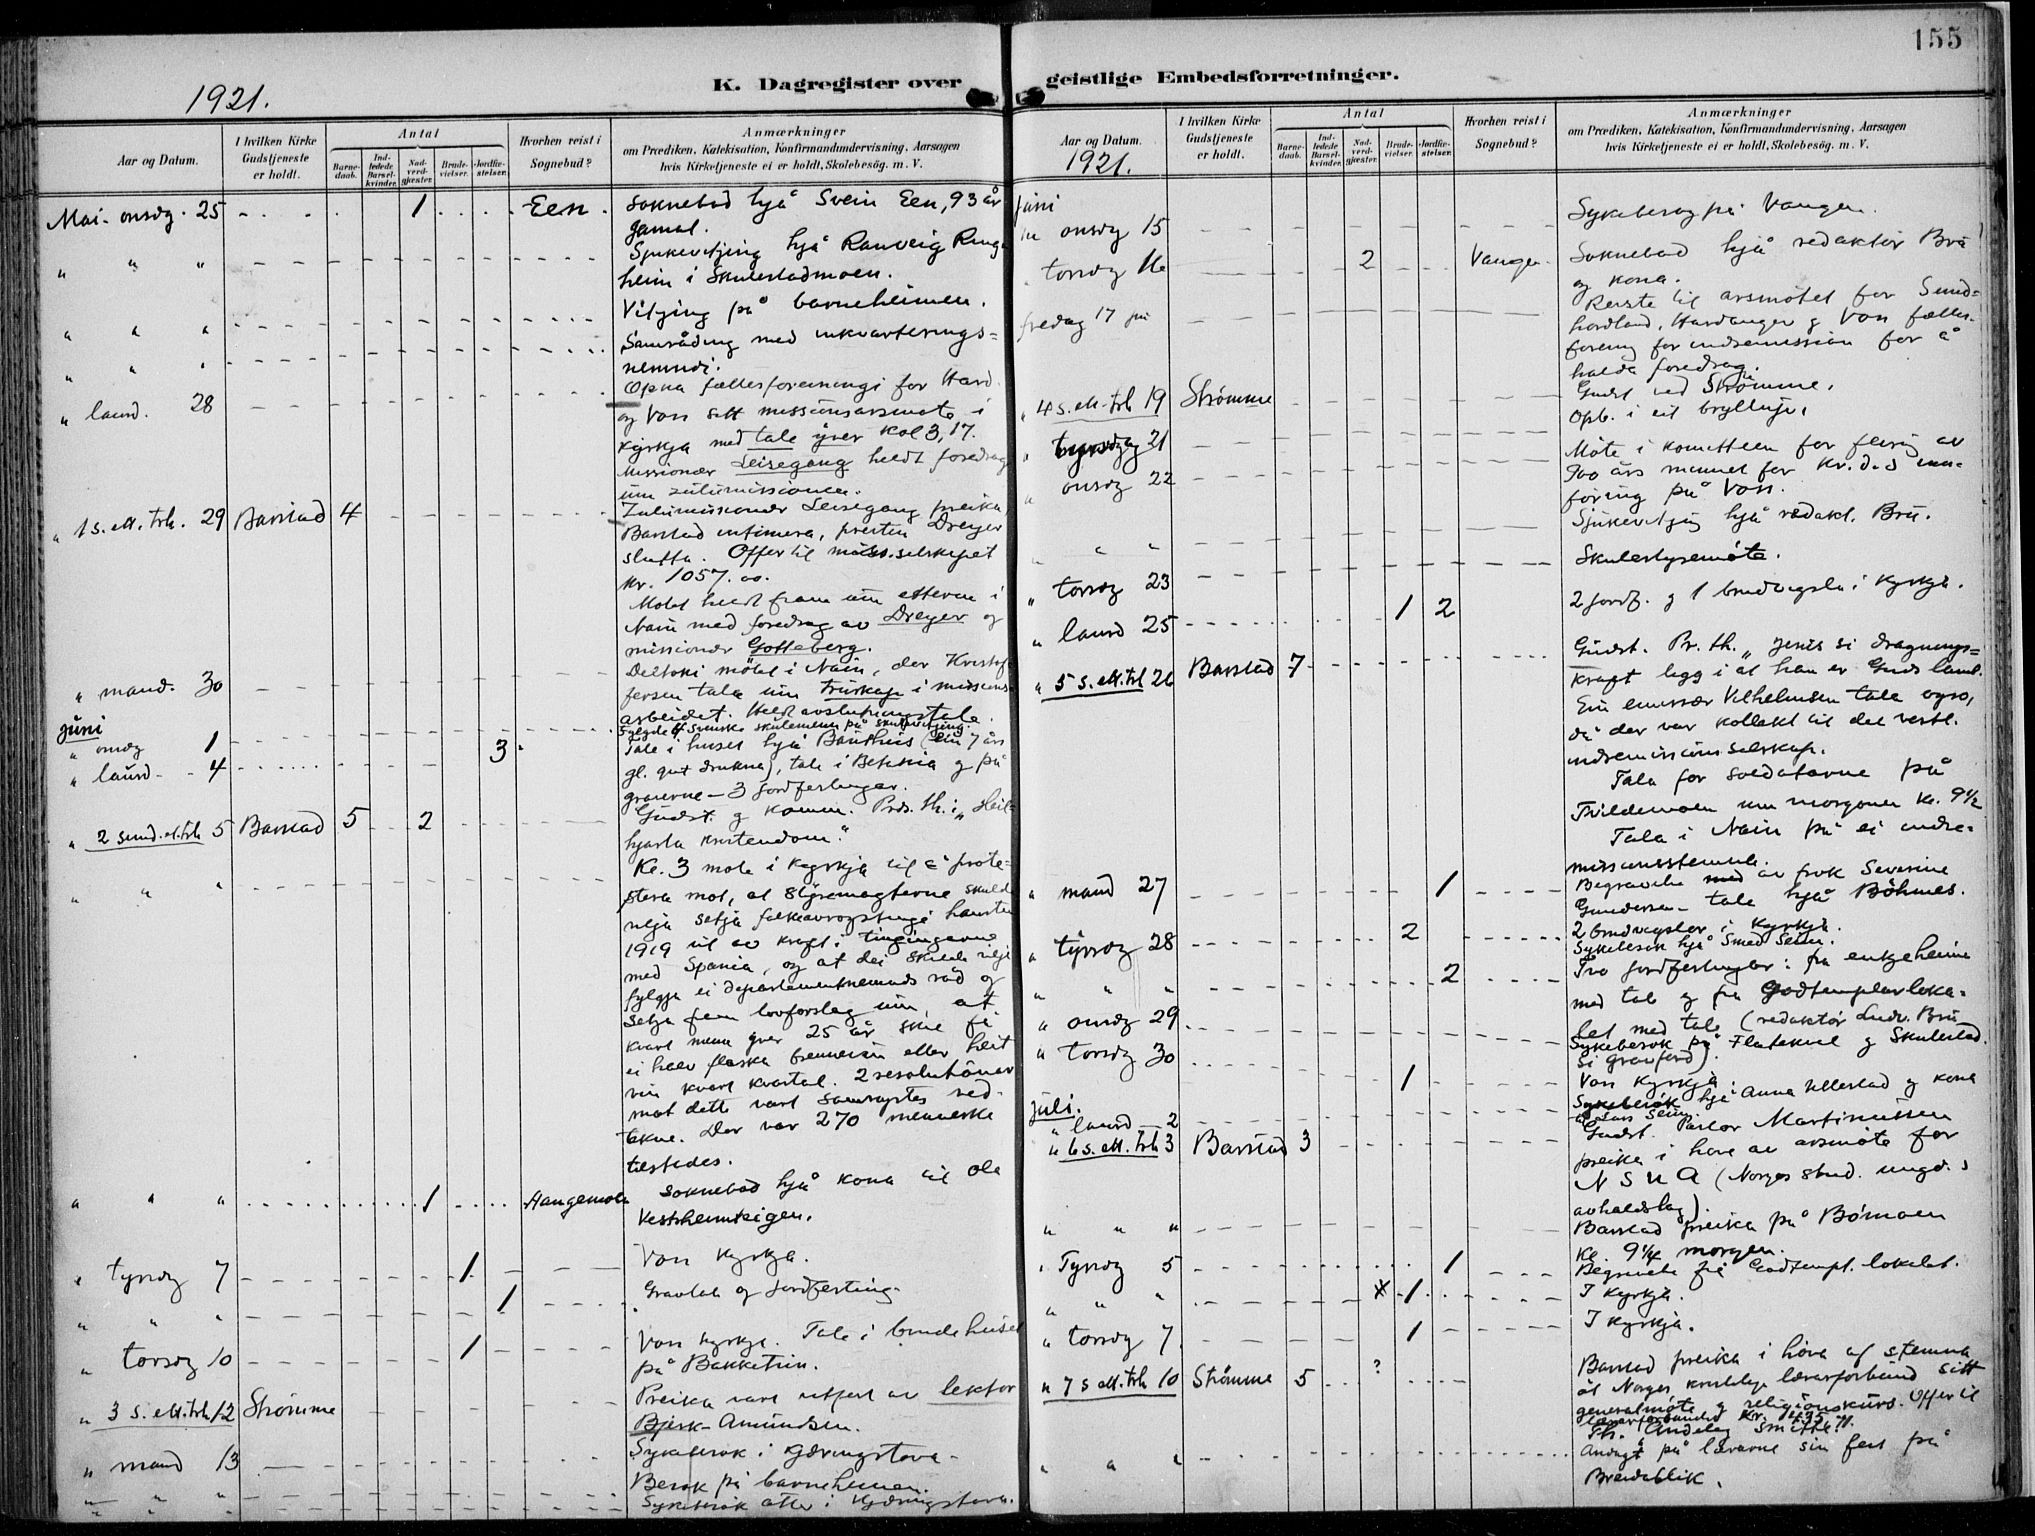 155
K. Dagregister over geistlige Embedsforretninger.
1921.
Aar og Datum.
I hvilken Kirke Gudstjeneste er holdt.
Antal
Barnedaab.
Indledede Barselkvinder.
Nadverdgjæster.
Brudevielser.
Jordfæstelser.
Hvorhen reist i Sognebud?
Anmærkninger
om Prædiken, Katekisation, Konfirmandundervisning, Aarsagen
hvis Kirketjeneste ei er holdt, Skolebesøg. m. V.
Mai. onsdg. 25 1 Een. Soknebod hjå Svein Een, 93 år
gamal.
" " " Sjukevitjing hjå Ranveig Ring
heim i Skulestadmoen.
" " " Vitjing på barneheimen.
" " " Samråding med inkvarterings=
nemndi.
" laurd. 28 Opna fællesforeiningi for Hard.
og Voss sitt missionsårsmøte i
Kyrkja med tale yver Kol 3, 17.
Missionær Leisegang heldt foredrag
um zulumissionen.
" 1 s. ett. trh. 29 Barstad 4 Zulumissionær Leisegang preika,
Barstad intimera, presten Dreyer
slutta. Offer til miss.selskapet
kr. 1057.00.
Møtet heldt fram um etterm i
Nain med foredrag av Dreyer og
missionær Gotteberg.
" mand. 30 Deltok i møtet i Nain, der Kristof-
fersen tala um truskap i missions-
arbeidet. Heldt avslutningstale.
juni
" onsdg 1 Fylgde 4 svenske skulemenn på skulevitjing.
" laurd. 4 3 Tale i huset hjå Bauthus (ein 7 års
gl. gut drukna), tale i Bekkia og på
gravene – 3 jordfestingar.
" 2 sund. et. trh 5 Barstad 5 2 Gudst. og komm. Præd. th.: "Heil-
hjarta kristendom."
" " " Kl. 3 møte i kyrkja til å prote=
stera mot, at styremagterne skulde
vilja setja folkeavrøystingi hausten
1919 ut av kraft i tingingarne
med Spania, og at dei skulde vilje
fylgja ei departementnemnds råd og
setja fram lovforslag um, at
kvart menn yver 25 år skal få
ei halv flaska brennevin eller heit
vin kvart kvartal. 2 resolutionar
mot dette vart samrøystes ved-
tekne. Der var 270 menneske
tilstedes.
" " " 1 Haugamoen Soknebod hjå kona til Ole
Vestrheimteigen.
" Tysdg 7 1 Voss Kyrkja.
" " " 1 Gravtale og jordfesting.
" torsdg 10 1 Voss kyrkje. Tale i brudehuset
på Bakketun.
" 3 s. ett. trh. 12 Strømme Preika vart utført av lektor
Bjerk-Amundsen.
" mand 13 Sykebesøk i Gjerningstova.
Besøk på barneheimen.
" " " Sykebesøk atter i Gjerningstova.
Aar og Datum.
1921.
I hvilken Kirke Gudstjeneste er holdt.
Antal
Barnedaab.
Indledede Barselkvinder.
Nadverdgjæster.
Brudevielser.
Jordfæstelser.
Hvorhen reist i Sognebud?
Anmærkninger
om Prædiken, Katekisation, Konfirmandundervisning, Aarsagen
hvis Kirketjeneste ei er holdt, Skolebesøg. m. V.
juni
onsdg 15 Sykebesøg på Vangen.
torsdg 16 2 Vangen. Soknebod hjå redaktør Bru
og kona.
fredag 17 Reiste til årsmøtet for Sund=
hordland, Hardanger og Voss fælles-
forening for indremission for å
halda foredrag.
" 4 s. ett. trh 19 Strømme Gudst ved Strømme.
Opb. i eit bryllup.
" tysdag 21 Møte i komitteen for feiring av
900 års minnet for kr.d.s inn-
føring på Voss.
" onsdg 22 Sjukevitjing hjå redakt. Bru.
" " Skulestyremøte.
" torsdg 23 2 jordf. og 1 brudvigsla i Kyrkja.
" laurd 25 1 2
" 5 s. ett. trh 26 Barstad 7 Gudst. Pr. th. "Jesus si dragnings=
kraft ligg i at han er Guds lamb.
Ein emissær Vilhelmsen tala ogso,
då der var kollekt til det vestl.
indremissionsselskap.
Tala for soldatarne på
Tvildemoen um morgonen kl. 9½
Tala i Nain på ei indre=
missionsstemna.
" mand 27 1 Begravelse av frøk Severine
Gundersen – tale hjå Böhmes.
" tysdg 28 2 2 brudvigslor i Kyrkja.
Sykebesøk hjå Smed Seim.
" " " 2 Tvo jordfestingar: fra enkjeheime
med tale og fra Godtemplarloka=
let med tale (redaktør Ludv. Bru
si gravferd).
" onsdg 29 Sykebesøk på Flatekval og Skulestad.
" torsdg 30 1 Voss Kyrkja
juli.
" laurd 2 Sykebesøk hjå Anna Ullestad og kona
til Lars Seim.
" 6 s. ett. trh 3 Barstad 3 Gudst. Pastor Martinussen
preika i høve av årsmøte for
N S U A (Norges Stud. ungd.s
avhaldslag).
" " " Barstad preika på Bömoen
kl. 9¼ morgen.
" Tysdg 5 1 Begravelse frå Godtempl. lokalet.
" " " 1 I Kyrkja.
" torsdg 7. 1 I Kyrkja.
" 7 s ett. trh 10 Strømme 5 ? Barstad preika i høve af stemna
åt Norges kristelege lærarforbund sitt
generalmøte og religionskurs. Offer til
lærarforbundet kr. 435,71.
Th. "Åndeleg smitte."
" " " Andagt på lærarne sin fest på
Breidablik.